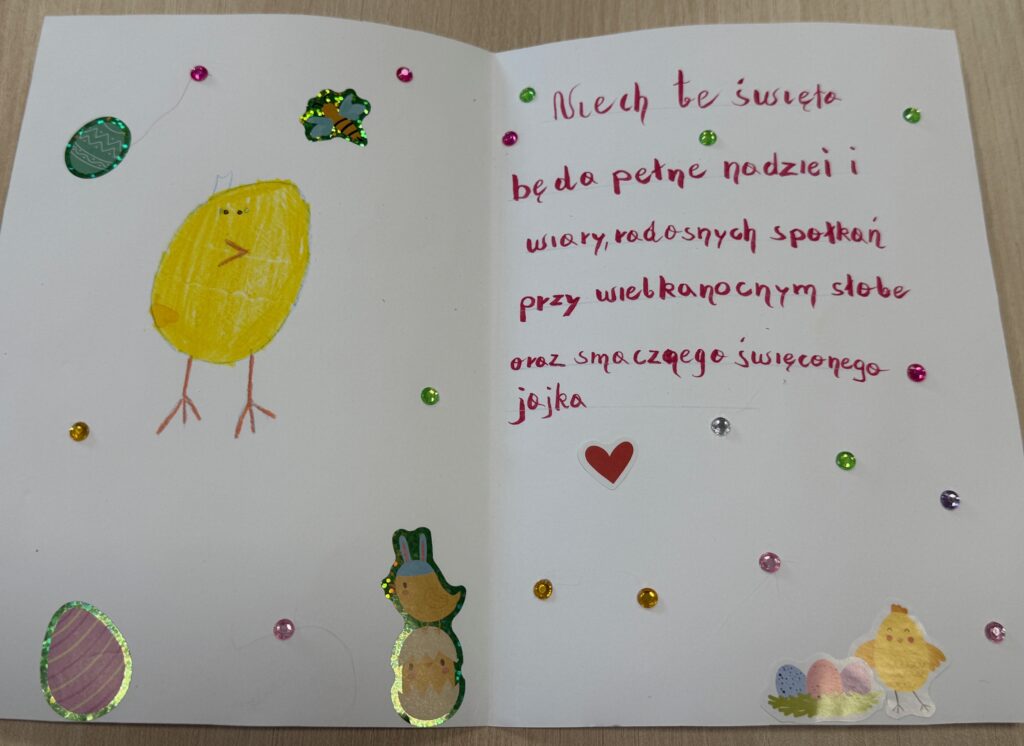 Niech te święta
będa pełne nadziei i
wiary, radosnych spotkań
przy wielkanocnym stole
oraz smacznego święconego
jajka